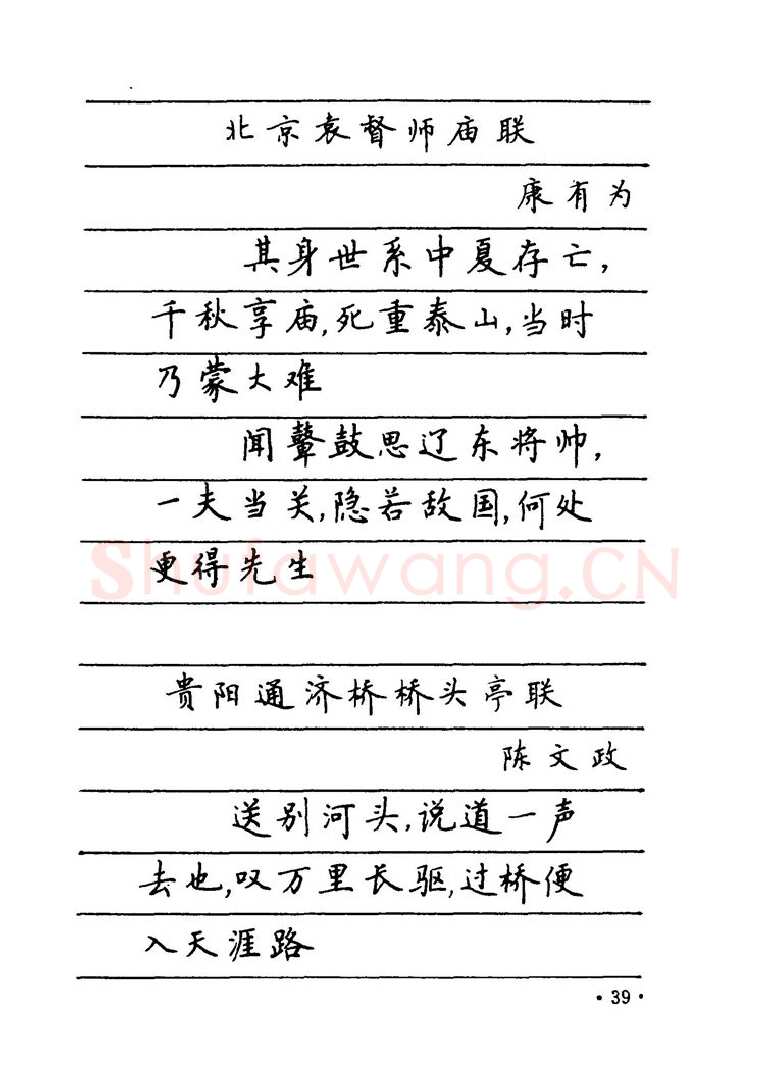 北京袁督师庙联
康有为
其身世系中夏存亡,
千秋享庙,死重泰山,当时
乃蒙大难
闻鼙鼓思辽东将帅,
一夫当关,隐若敌国,何处
更得先生
Shufawang.CN
贵阳通济桥桥头亭联
陈文政
送别河头,说道一声
去也,叹万里长驱,过桥便
入天涯路
·39·